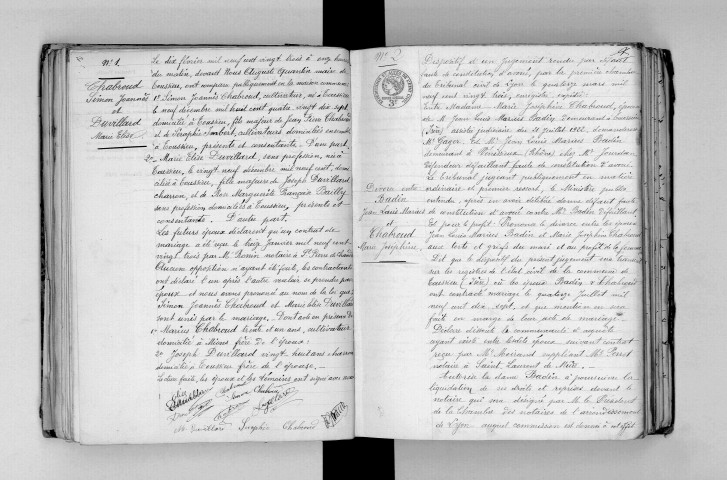 N° 1
Chabroud
Simon Joannès
et
Duvillard
Marie Elise
Le dix février mil neuf cent vingt trois à onze heures
du matin, devant Nous Auguste Quantin maire de
Toussieu, ont comparu publiquement en la maison commune
1° Simon Joannès Chabroud, cultivateur, né à Toussieu
le neuf décembre mil huit cent quatre vingt dix sept
domicilié à Toussieu, fils majeur de Jean Pierre Chabroud
et de Séraphie Imbert, cultivateurs domiciliés ensemble
à Toussieu, présents et consentants. D'une part.
2° Marie Elise Duvillard, sans profession, née à
Toussieu, le vingt neuf décembre, mil neuf cent, domi-
ciliée à Toussieu, fille majeure de Joseph Duvillard
charron, et de Rose Marguerite Françoise Bailly
sans profession domiciliés à Toussieu, présents et
consentants. D'autre part.
Les futurs époux déclarent qu'un contrat de
mariage a été reçu le treize Janvier mil neuf cent
vingt trois par M° notaire à St Pierre de Chandieu
Aucune opposition n'ayant été faite, les contractants
ont déclaré l'un après l'autre vouloir se prendre pour
époux et nous avons prononcé au nom de la loi que
Simon Joannès Chabroud et Marie Elise Duvillard
sont unis par le mariage. Dont acte en présence de
1° Marius Chabroud trente et un ans, cultivateur
domicilié à Mions frère de l'époux;
2° Joseph Duvillard vingt huit ans charron
domicilié à Toussieu frère de l'épouse. —
Lecture faite, les époux et les témoins ont signé avec nous
Elise
Duvillard
Chabroud
Simon Chabroud
M Duvillard Séraphie Chabroud
N° 2
4
Divorce entre
Badin
Jean Louis Marius
et
Chabroud
Marie Joséphine
Dispositif d'un jugement rendu par défaut
faute de constitution d'avoué, par la première chambre
du tribunal civil de Lyon le quatorze mars mil
neuf cent vingt trois, enregistré, expédié
Entre Madame Marie Joséphine Chabroud, épouse
de M. Jean Louis Marius Badin demeurant à Toussieu
(Isère) assistée judiciaire du 18 Juillet 1922, demanderesse
M° Gager. Et M. Jean Louis Marius Badin
demeurant à Vénissieux (Rhône) chez M° Jourdan
défendeur défaillant faute de constitution d'avoué.
Le tribunal jugeant publiquement en matière
ordinaire et premier ressort, le Ministère public
entendu, après en avoir délibéré donne défaut faute
de constitution d'avoué contre M° Badin défaillant
Et pour le profit: Prononce le divorce entre les époux
Jean Louis Marius Badin et Marie Joséphine Chabroud
aux torts et griefs du mari et au profit de la femme
Dit que le dispositif du présent jugement sera transcrit
sur les registres de l'état civil de la commune de
Toussieu (Isère) où les époux Badin et Chabroud
ont contracté mariage le quatorze Juillet mil
neuf cent dix sept, et que mention en sera
fait en marge de leur acte de mariage. —
Déclare dissoute la communauté d'acquêts
ayant existé entre lesdits époux suivant contrat
reçu par M° Morrand suppléant M° Perrot
notaire à Saint Laurent de Mure. —
Autorise la dame Badin à poursuivre la
liquidation de ses droits et reprises devant le
notaire qui sera désigné par M. le Président
de la Chambre des notaires de l'arrondissement
de Lyon auquel commission est donnée à cet effet